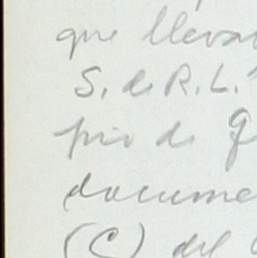 que lleva
S. de R.L."
pio de G
docume
(C) del